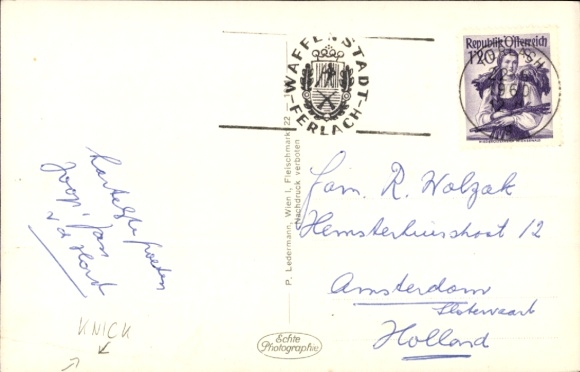 WAFFENSTADT-
FERLACH-
Republik Österreich
1'20
1960
P. Ledermann, Wien I, Fleischmarkt 22
Nachdruck verboten
Echte
Photographie
hartelijke groeten
Joop, Jan
v d Horst
KNICK
Fam. R. Wolzak
12
Amsterdam
Slotervaart
Holland